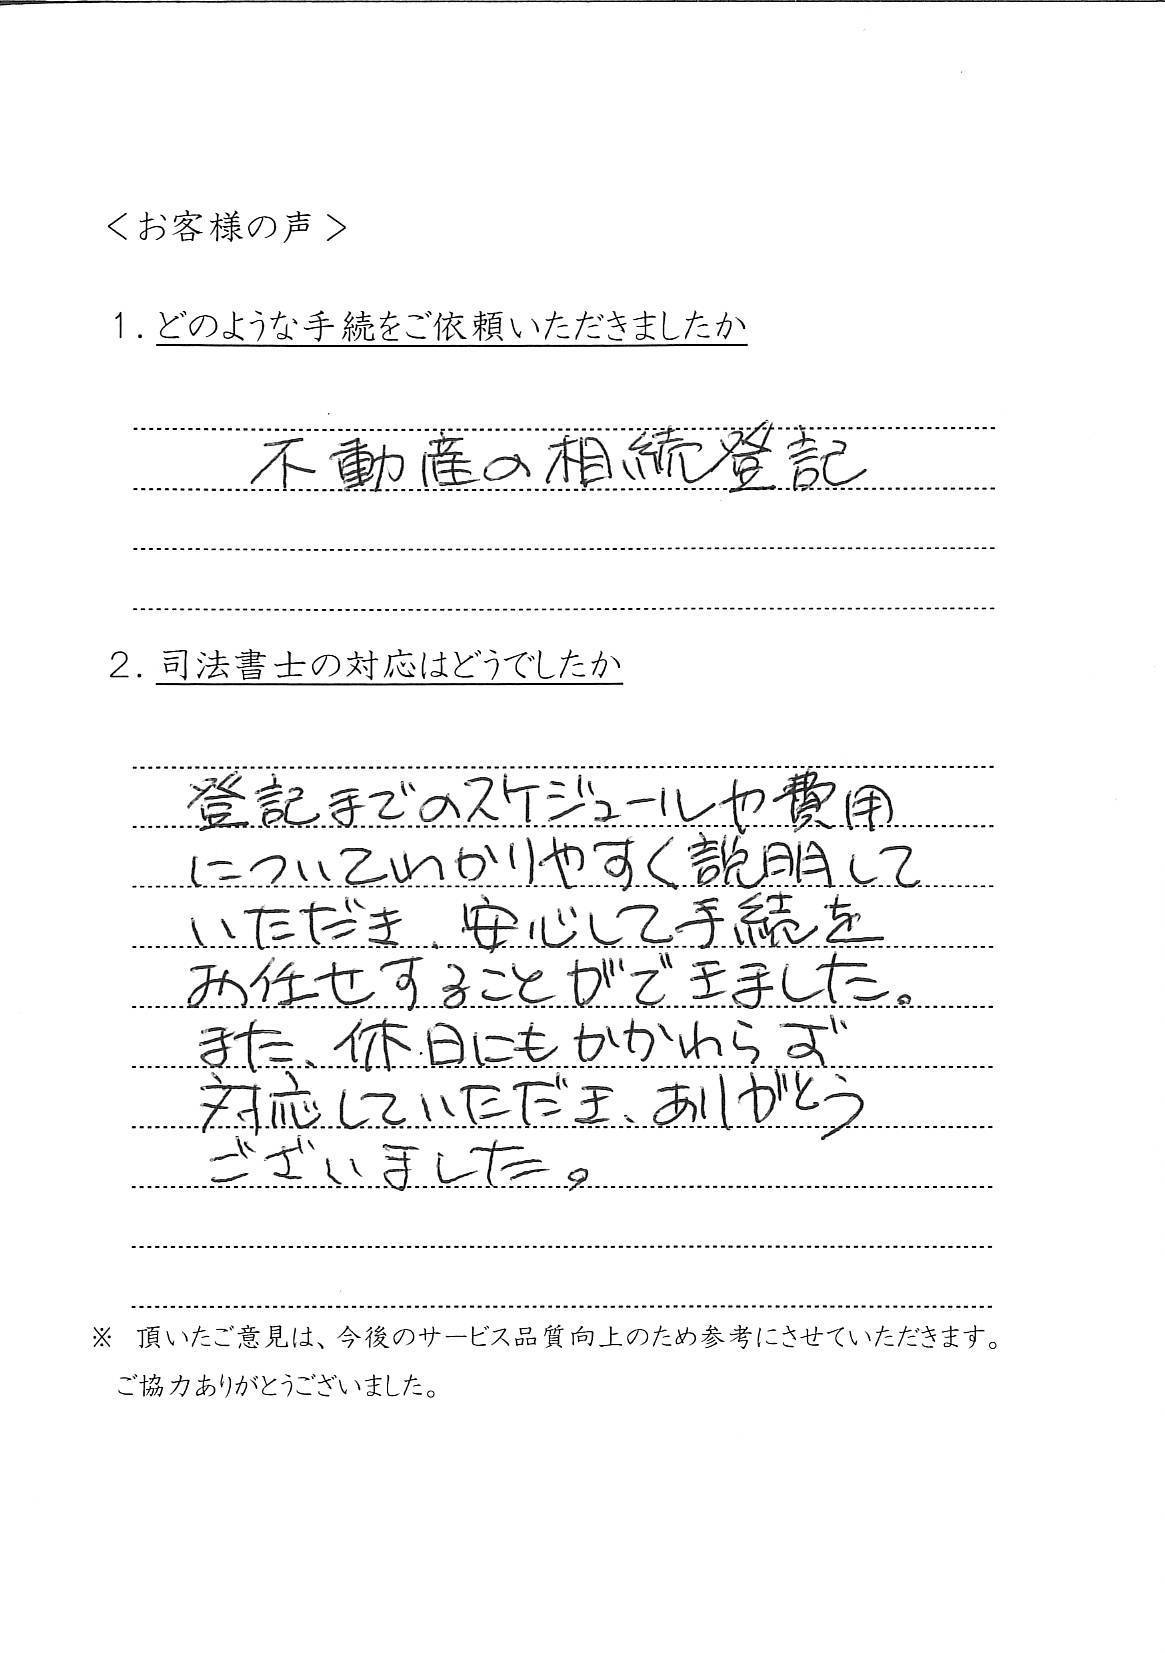 ＜お客様の声＞
1. どのような手続をご依頼いただきましたか
不動産の相続登記
2. 司法書士の対応はどうでしたか
登記までのスケジュールや費用
についてわかりやすく説明して
いただき、安心して手続を
お任せすることができました。
また、休日にもかかわらず
対応していただき、ありがとう
ございました。
※　頂いたご意見は、今後のサービス品質向上のため参考にさせていただきます。
ご協力ありがとうございました。